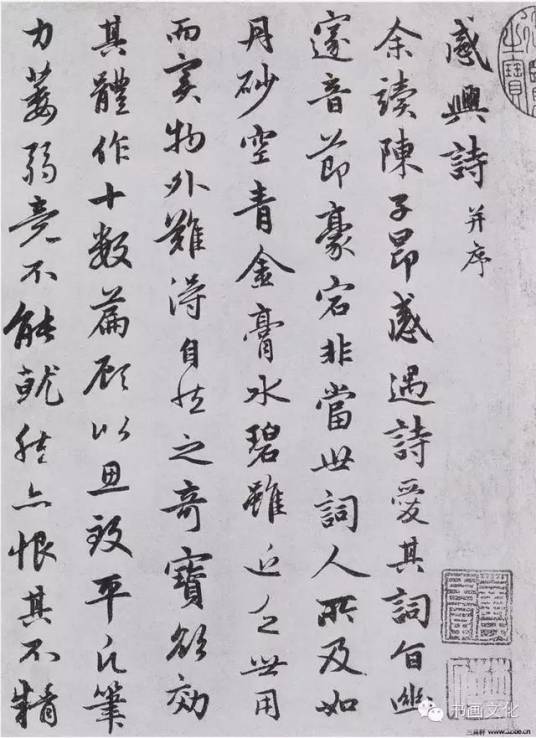 感興詩 并序
余讀陳子昂感遇詩愛其詞旨幽
邃音節豪宕非當世詞人所及如
丹砂空青金膏水碧雖近乏世用
而實物外難得自然之奇寶欲効
其體作十數篇顧以思致平凡筆
力萎弱竟不能就然亦恨其不精
之寶
书画文化